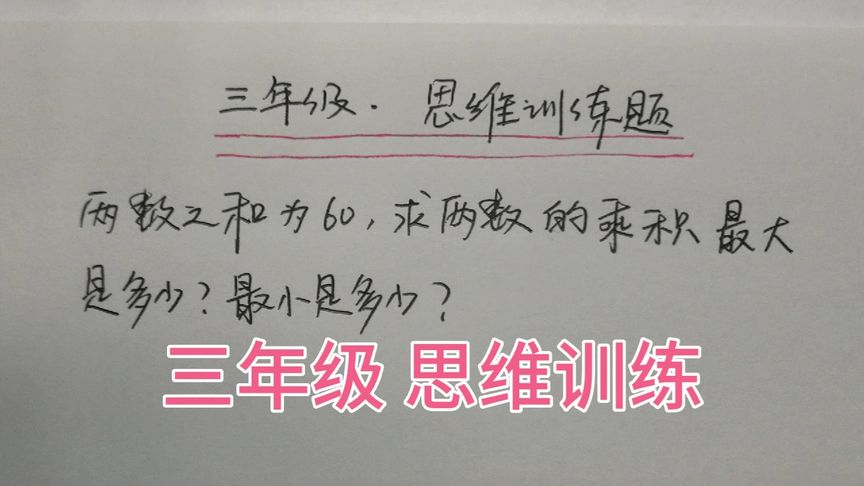 三年级. 思维训练题
两数之和为60,求两数的乘积最大
是多少?最小是多少?
三年级 思维训练